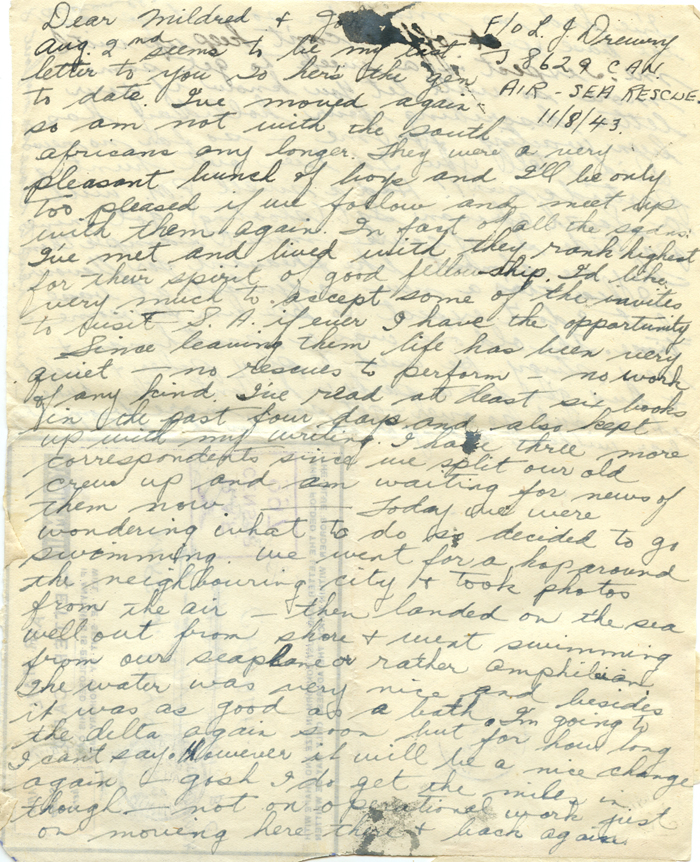 Dear Mildred &
F/O L. J. Drewry
J 8629 CAN.
AIR-SEA RESCUE.
11/8/43.
Aug. 2nd seems to be my last
letter to you so here's the gen
to date. I've moved again -
so am not with the South
africans any longer. They were a very
pleasant bunch of boys and I'll be only
too pleased if we follow and meet up
with them again. In fact of all the sqdns.
I've met and lived with they rank highest
for their spirit of good fellowship. I'd like
very much to accept some of the invites
to visit S.A. if ever I have the opportunity
Since leaving them life has been very
quiet — no rescues to perform — no work
of any kind. I've read at least six books
in the past four days and also kept
up with my writing. I have three more
correspondents since we split our old
crew up and am waiting for news of
them now. — Today we were
wondering what to do so decided to go
swimming. We went for a hop around
the neighbouring city & took photos
from the air — then landed on the sea
well out from shore & went swimming
from our seaplane or rather amphibian
The water was very nice and besides
it was as good as a bath. I'm going to
the delta again soon but for how long
I can't say. However it will be a nice change
again — gosh I do get the miles in
though — not on operational work just
on moving here there & back again.